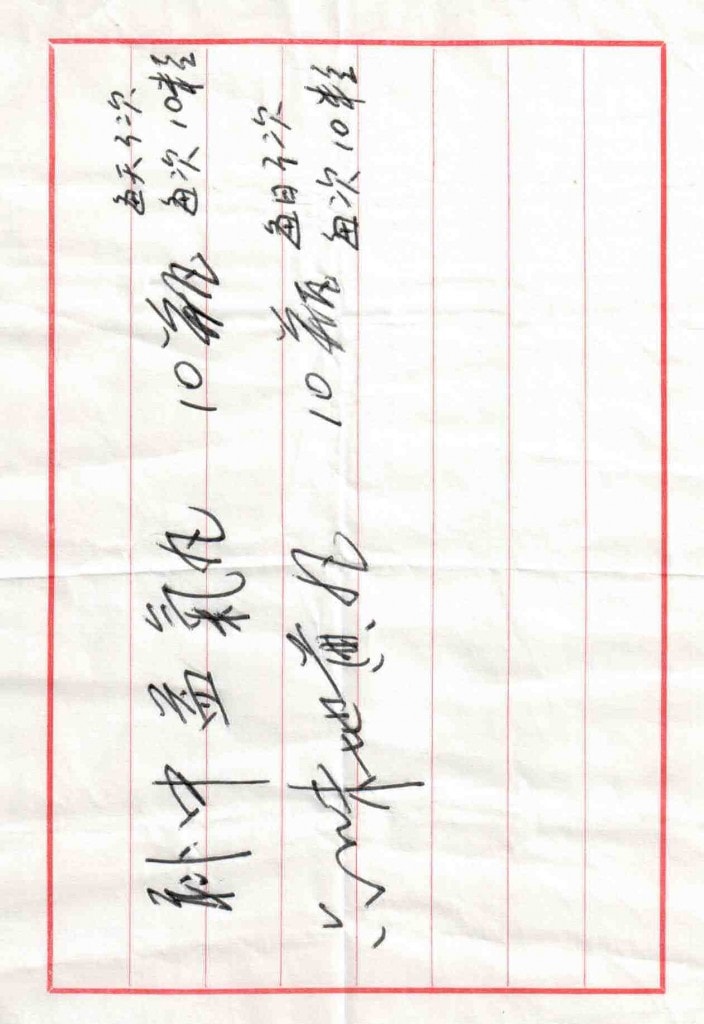 补中益氣丸 10瓶 每天3次
每次10粒
六味地黄丸 10瓶 每日3次
每次10粒